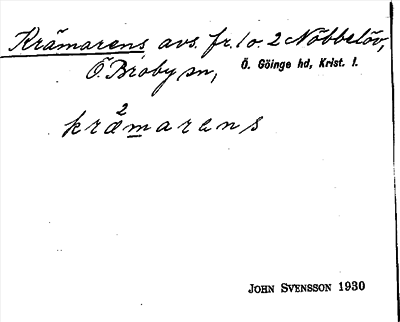 Krämarens avs. fr. 1 o. 2 Nöbbelöv,
Ö. Broby sn, Ö. Göinge hd, Krist. l.
2
kræmarens
JOHN SVENSSON 1930